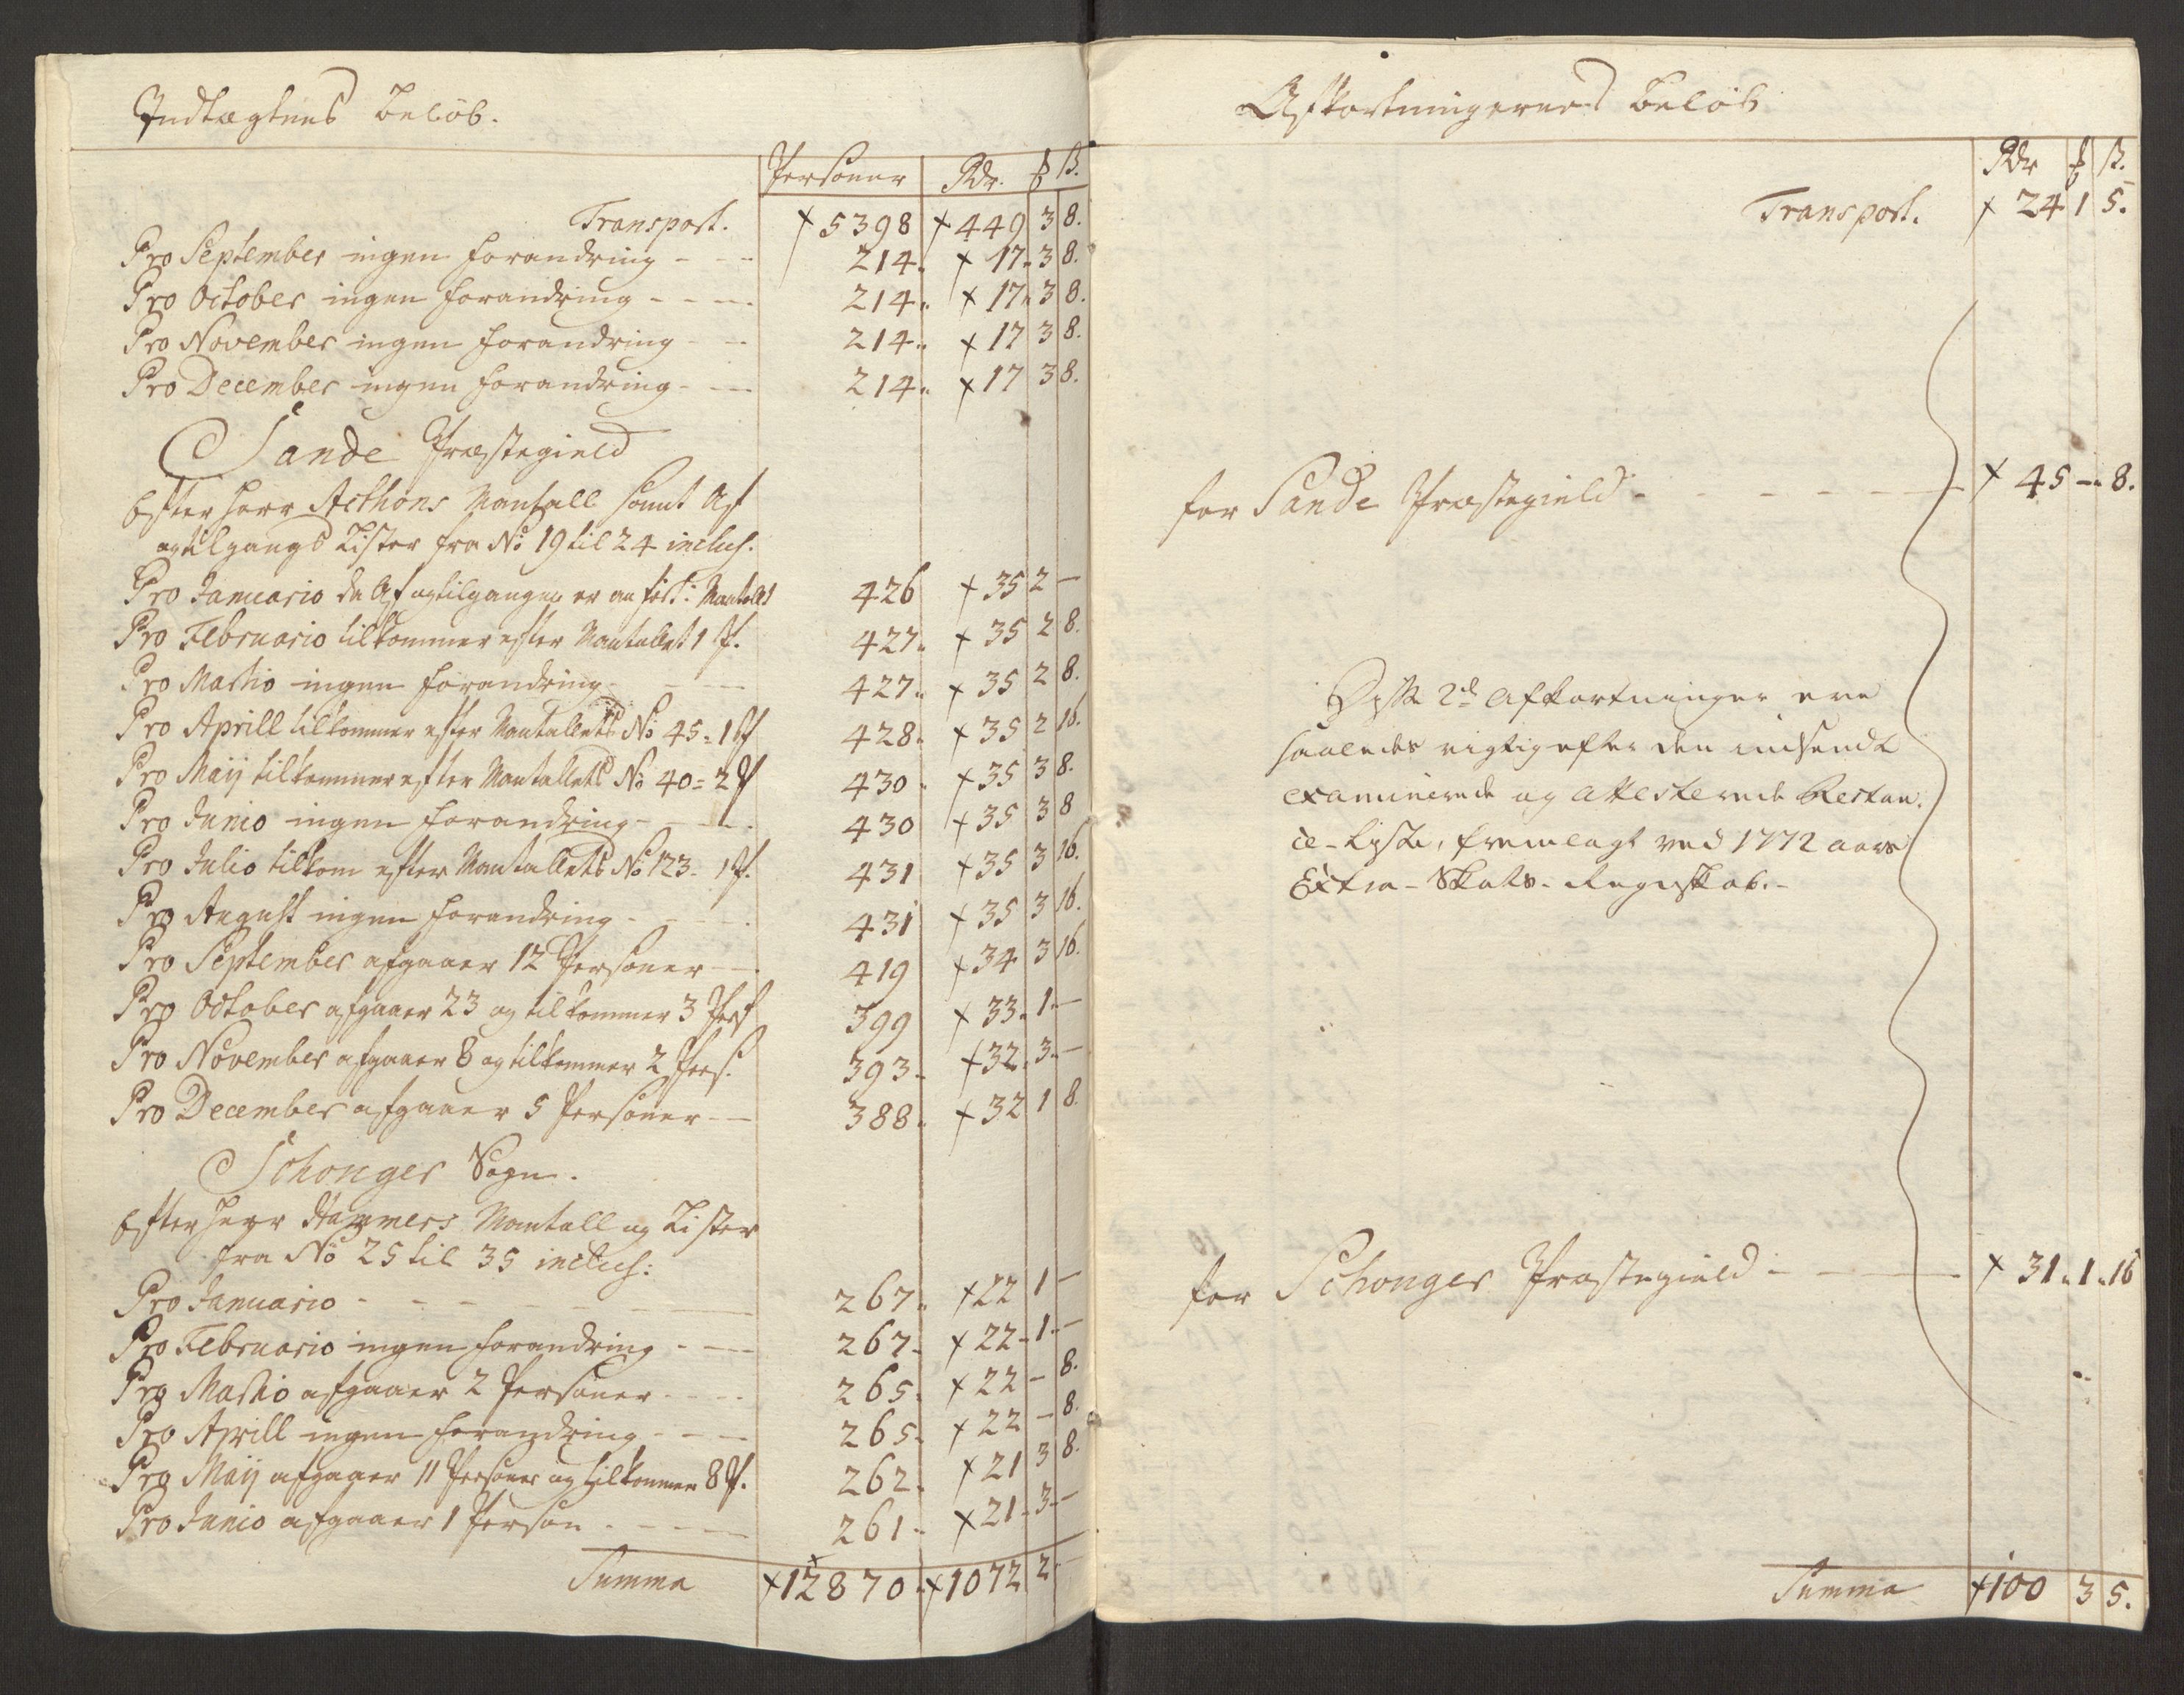 Indtægtens Beløb.
Personer Rdr. ꝑ ß.
Transport. × 5398 × 449 3 8.
Pro September ingen Forandring - - - 214. × 17. 3 8.
Pro October ingen Forandring - - - 214. × 17. 3 8.
Pro November ingen Forandring - - 214. × 17 3 8.
Pro December ingen Forandring - - - 214. × 17 3 8.
Sande Præstegield
Efter Herr Acthons Mantall samt Af
og tilgangs Lister fra No 19 til 24 inclus.
Pro Januario da Af og tilgangen er an før: Mantallet 426 × 35 2 —
Pro Februario tilkommer efter Mantallet 1 P. 427. × 35 2 8.
Pro Martio ingen Forandring - - - 427. × 35 2 8.
Pro Aprill tilkommer efter Mantallets No 45 = 1 P 428. × 35 2 16.
Pro Maij tilkommer efter Mantallets No 40 = 2 P 430. × 35 3 8.
Pro Junio ingen Forandring - - - 430 × 35 3 8
Pro Julio tilkom efter Mantallets No 123 - 1 P. 431 × 35 3 16.
Pro August ingen Forandring - - - 431 × 35 3 16.
Pro September afgaaer 12 Personer - - 419 × 34 3 16.
Pro October afgaaer 23 og tilkommer 3 Pers 399 × 33. 1. —
Pro November afgaaer 8 og tilkommer 2 Pers. 393. × 32. 3. —
Pro December afgaaer 5 Personer - - 388. × 32 1 8.
Schonger Sogn.
Efter Herr Hammers Mantall og Lister
fra No 25 til 35 inclus:
Pro Januario - - - - - 267. × 22 1 —
Pro Februario ingen Forandring - - - 267. × 22. 1. —
Pro Martio afgaaer 2 Personer - - - 265. × 22 — 8.
Pro Aprill ingen Forandring - - - 265. × 22 — 8.
Pro Maij afgaaer 11 Personer og tilkommer 8 P. 262. × 21 3 8.
Pro Junio afgaaer 1 Person - - - - 261. × 21. 3. —
Summa × 12870. × 1072 2. —
Afkortningernes Beløb
Rdr ꝑ ß.
Transport. × 24 1 5.
for Sande Præstegield - - - - - × 45 — 8.
Disse 2de Afkortninger ere
saaledes rigtig efter den indsendte
examinerede og attesterede Restan:
ce-Liste, fremlagt ved 1772 aars
Extra-Skats-Regnskab. -
for Schonger Præstegield - - - × 31. 1. 16
Summa × 100 3 5.